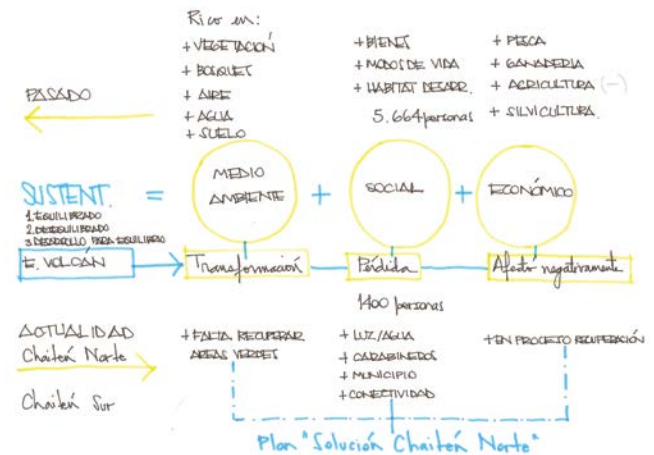 Rico en:
+ VEGETACIÓN
+ BOSQUES
+ AIRE
+ AGUA
+ SUELO
+ BIENES
+ MODOS DE VIDA
+ HABITAT DESARR.
5.664 personas
+ PESCA
+ GANADERIA
+ AGRICULTURA (-)
+ SILVICULTURA.
PASADO
SUSTENT. = MEDIO AMBIENTE + SOCIAL + ECONÓMICO
1. EQUILIBRADO
2. DESEQUILIBRADO
3. DESARROLLO PARA EQUILIBRIO
E. VOLCÁN
Transformación
Pérdida
Afectó negativamente
1400 personas
ACTUALIDAD
Chaitén Norte
Chaitén Sur
+ FALTA RECUPERAR
AREAS VERDES
+ LUZ/AGUA
+ CARABINEROS
+ MUNICIPIO
+ CONECTIVIDAD
+ EN PROCESO RECUPERACIÓN
Plan "Solución Chaitén Norte"